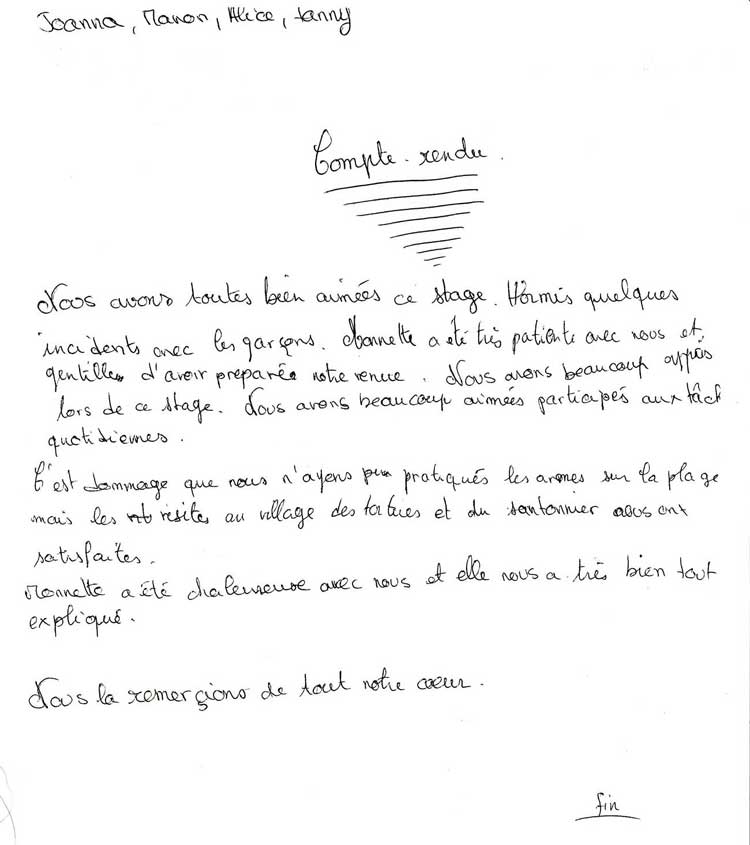 Joanna, Manon, Alice, Fanny
Compte-rendu.
Nous avons toutes bien aimées ce stage. Hormis quelques
incidents avec les garçons. Monnette a été très patiente avec nous et
gentille d'avoir preparée notre venue. Nous avons beaucoup appris
lors de ce stage. Nous avons beaucoup aimées participés aux tâch
quotidiennes.
C'est dommage que nous n'ayons pratiqués les armes sur la plage
mais les visites au village des tortues et du santonnier nous ont
satisfaites.
Monnette a été chaleureuse avec nous et elle nous a très bien tout
expliqué.
Nous la remerçions de tout notre cœur.
fin